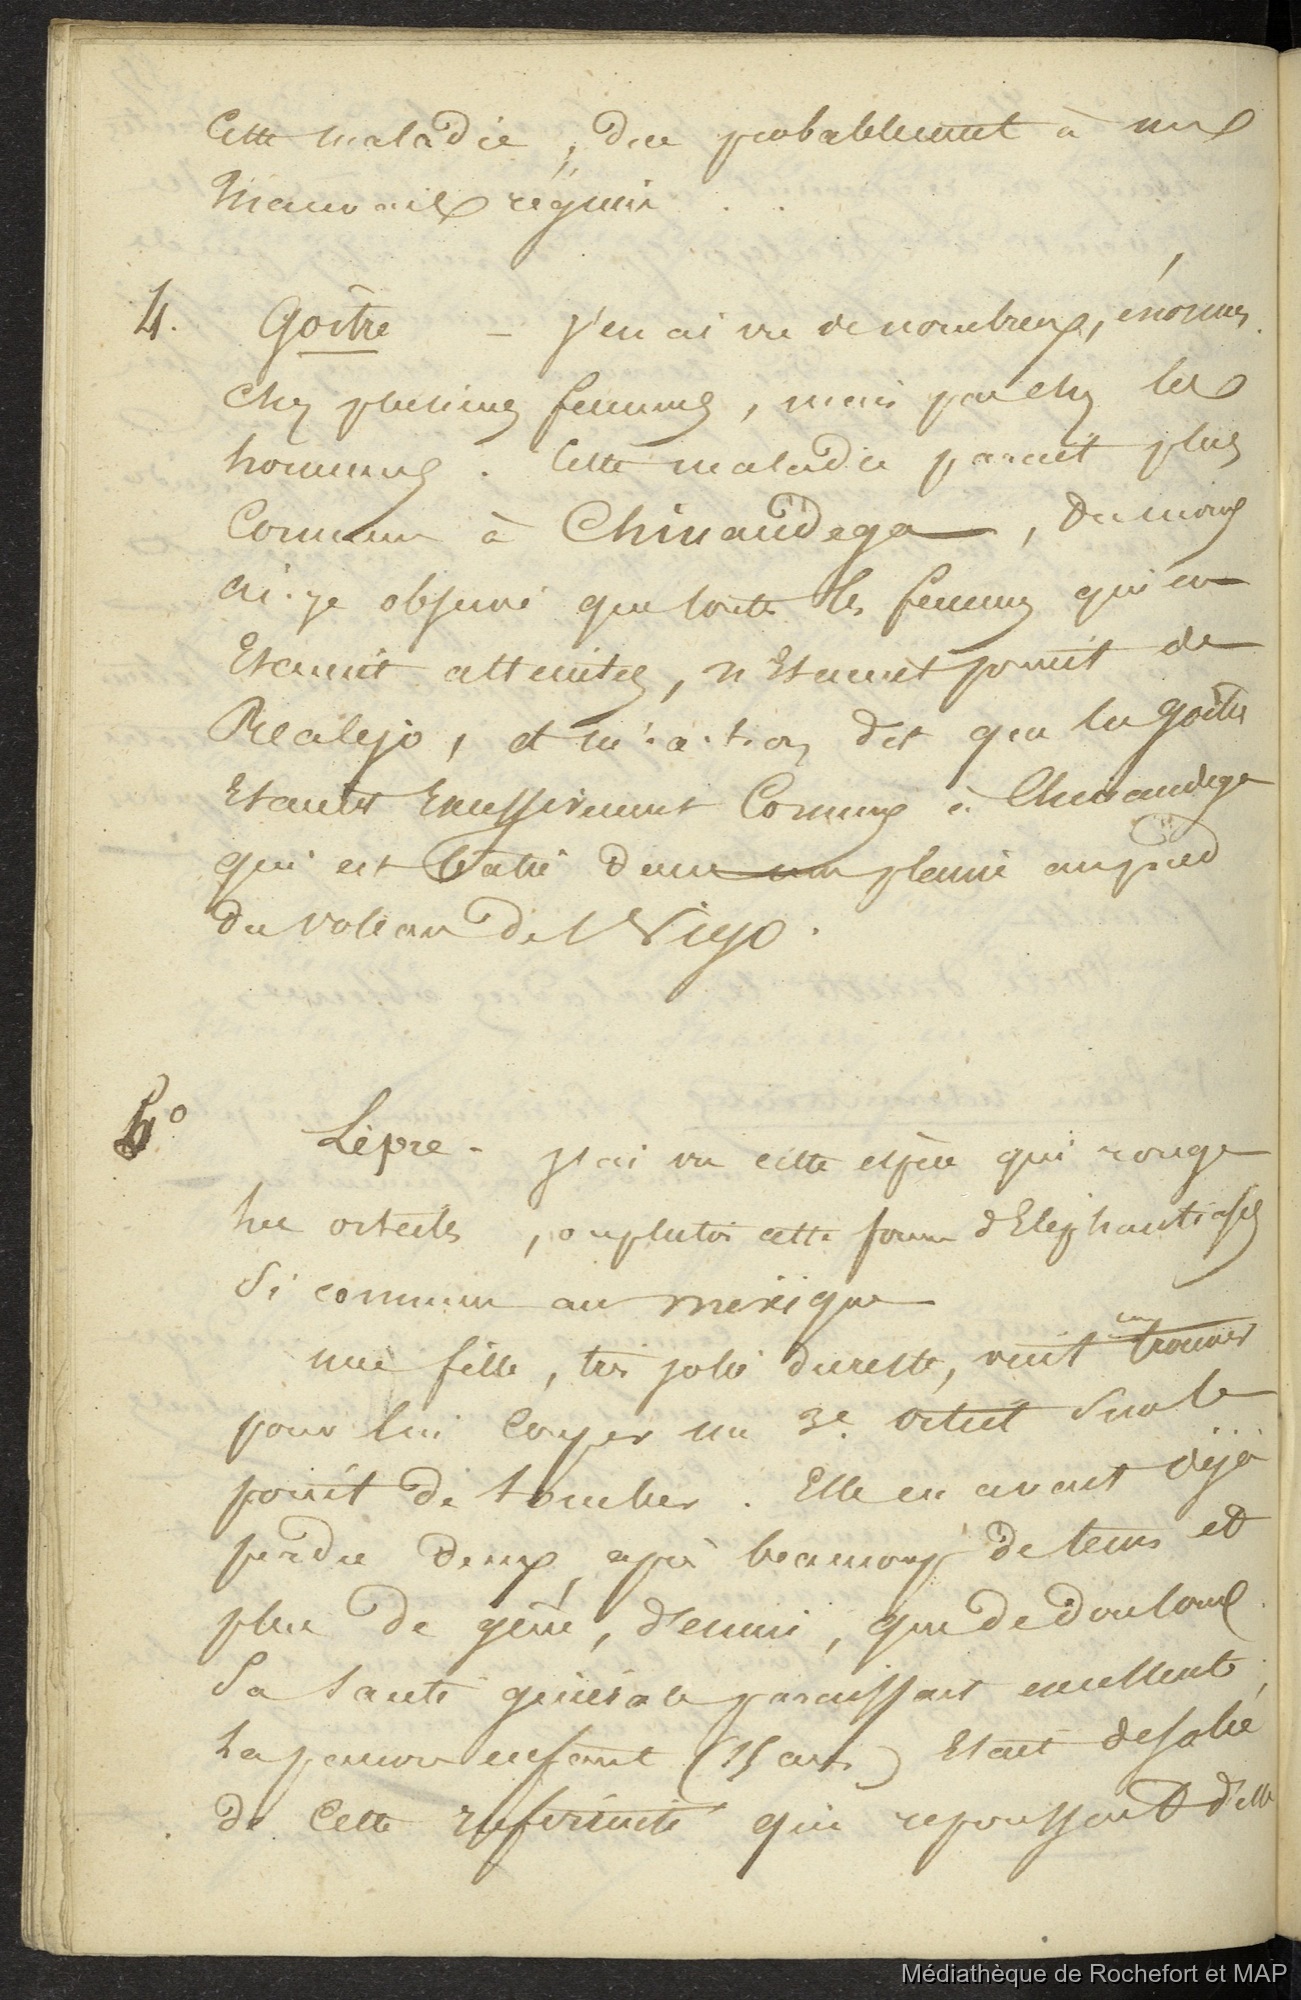 Cette maladie, due probablement à une
mauvaise régime . .
4. Goître – j'en ai vu de nombreux, énormes
chez plusieurs femmes, mais pas chez les
hommes. Cette maladie parait plus
commune à Chinandega, du moins
ai-je observé que toutes les femmes qui en
etaient atteintes, n'etaient point de
Realejo, et m'a-t-on dit que les goîtres
etaient excessivement communs à Chinandega
qui est batie dans une plaine au pied
du volcan del Viejo.
5° Lèpre – j'ai vu cette espèce qui ronge
les orteils, ou plutôt cette forme d'Elephantiasis
si commune au mexique
une fille, très jolie du reste, vint me trouver
pour lui couper un 3e orteil sur le
point de tomber. Elle en avait déjà
perdu deux, après beaucoup de tems et
plus de gêne, d'ennui, que de douleurs.
Sa santé générale paraissait excellente,
la pauvre enfant (15 ans) etait desolée
de cette infirmité qui repoussait d'elle
Médiathèque de Rochefort et MAP